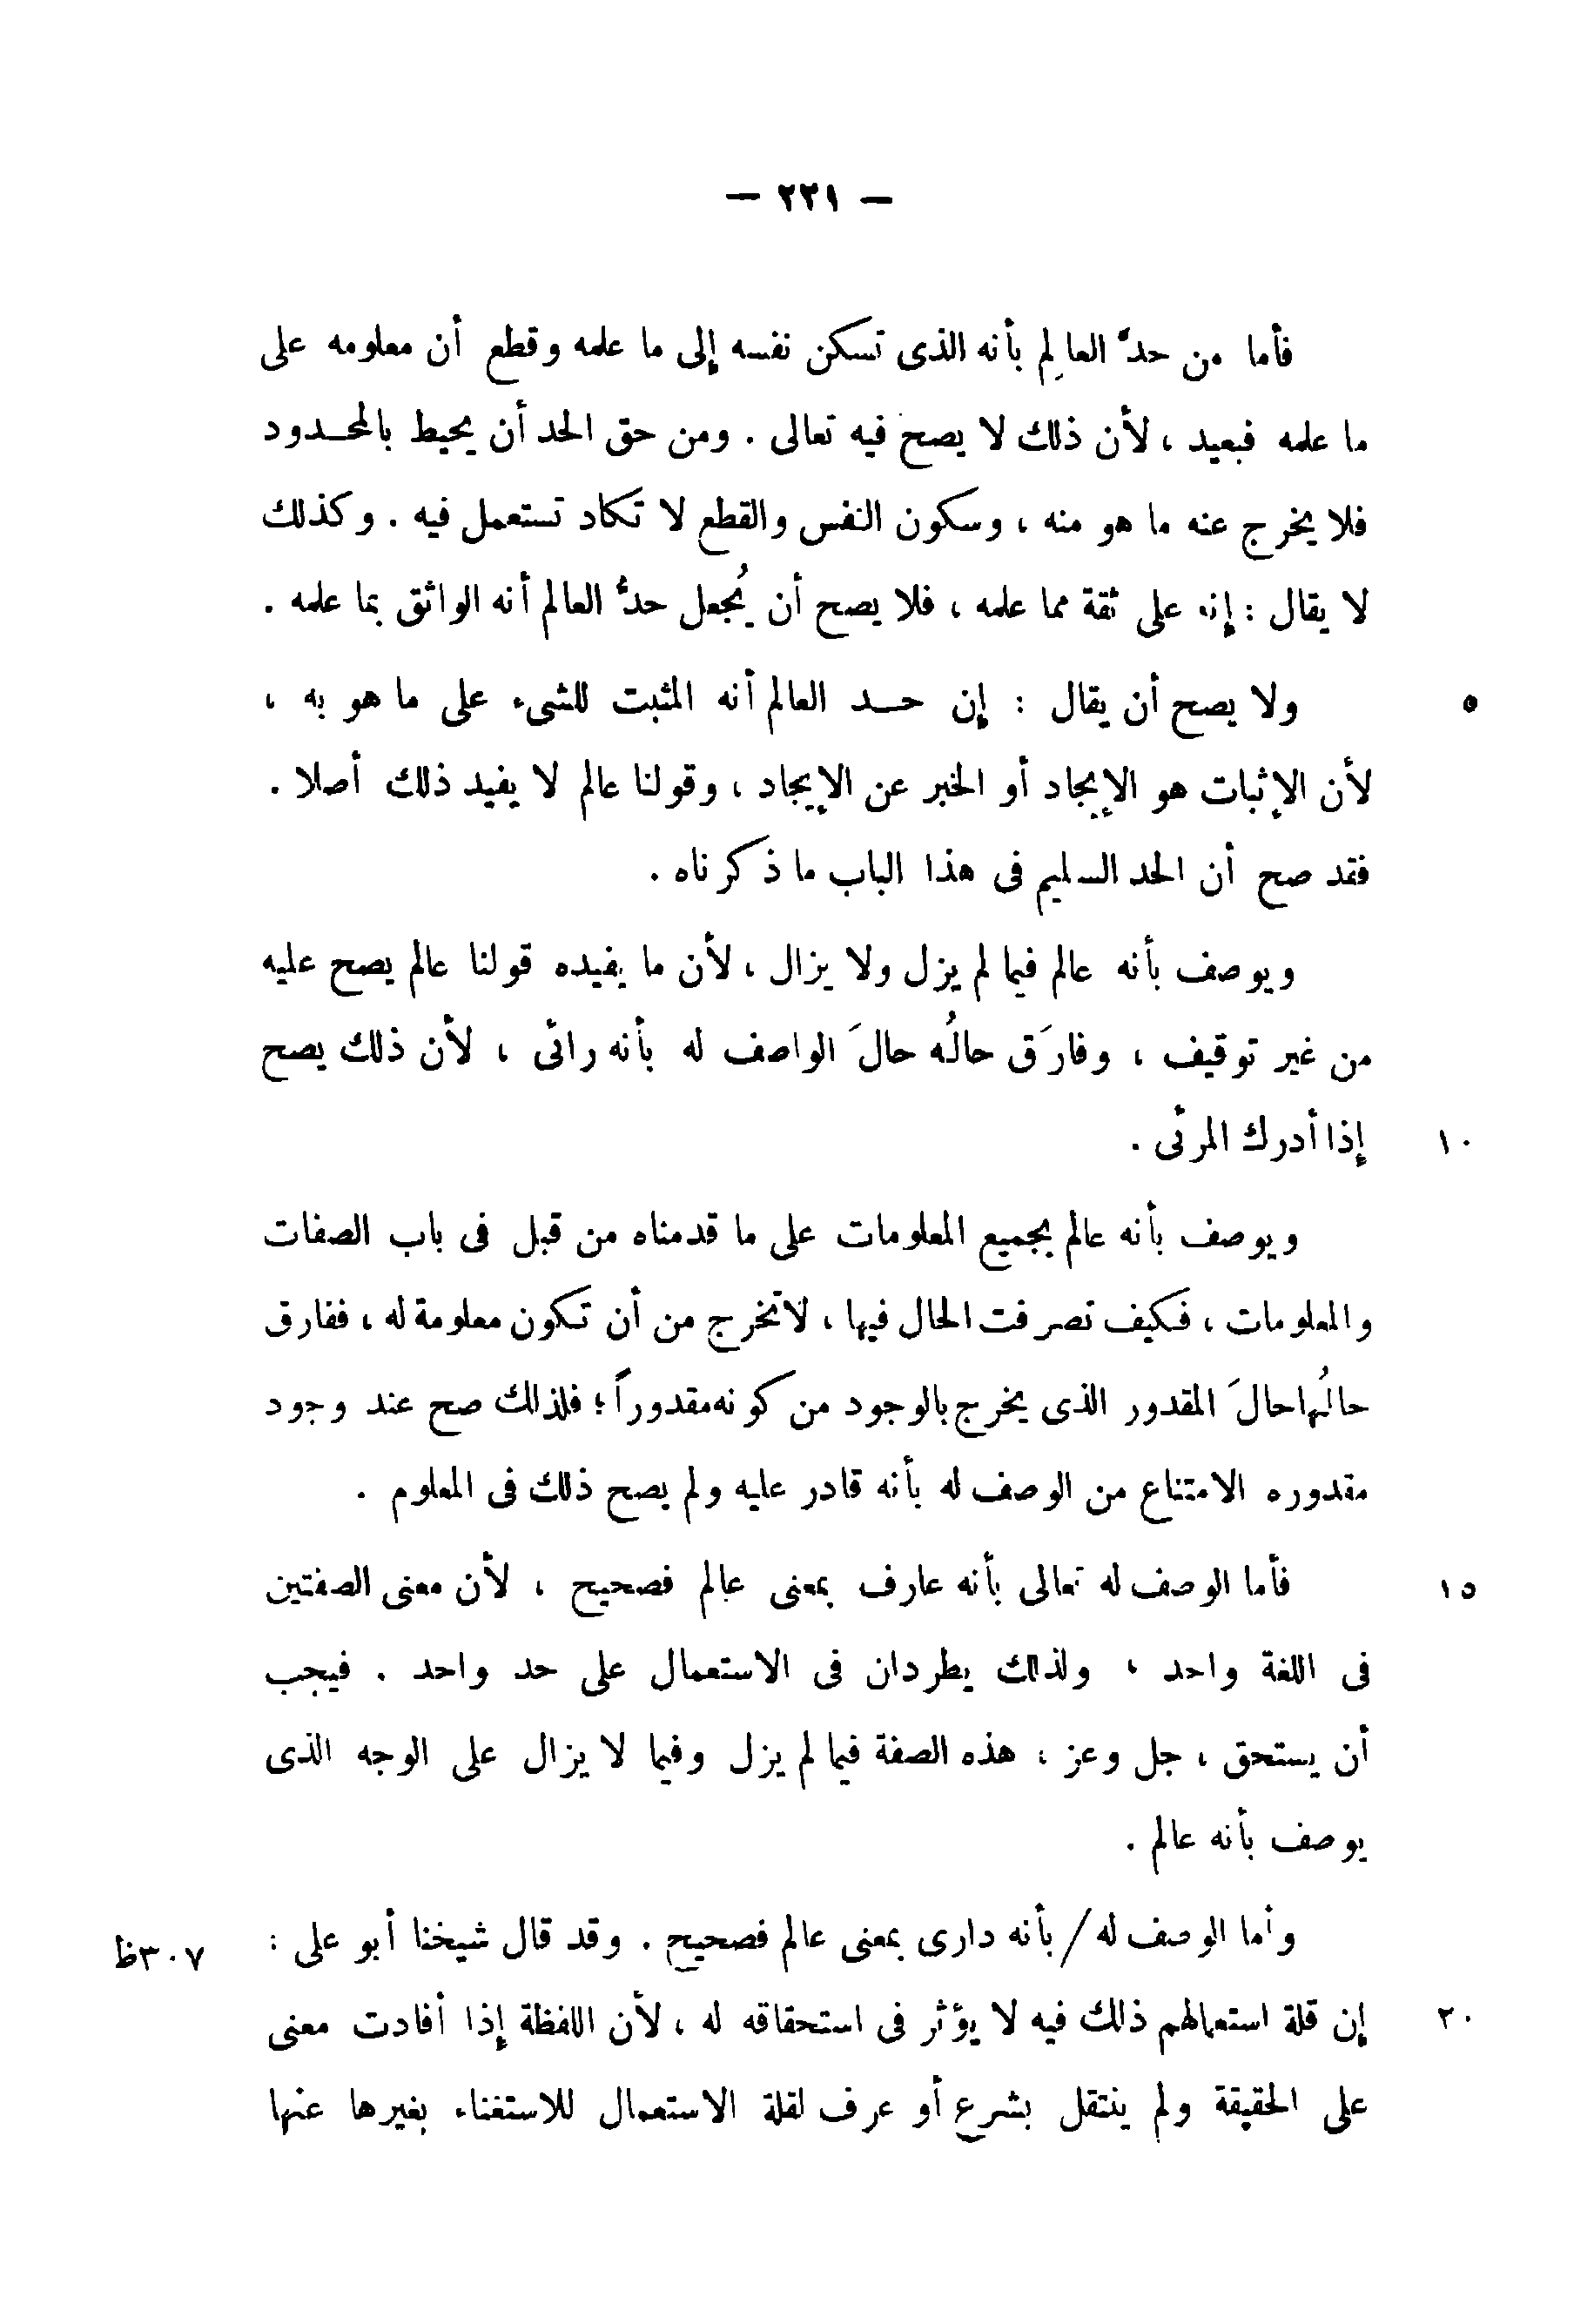 — ٢٢١ —
فأما من حدّ العالِم بأنه الذى تسكن نفسه إلى ما علمه وقطع أن معلومه على
ما علمه فبعيد ، لأن ذلك لا يصح فيه تعالى . ومن حق الحد أن يحيط بالمحـدود
فلا يخرج عنه ما هو منه ، وسكون النفس والقطع لا تكاد تستعمل فيه . وكذلك
لا يقال : إنه على ثقة مما علمه ، فلا يصح أن يُجعل حدّ العالم أنه الواثق بما علمه .
٥ ولا يصح أن يقال : إن حـد العالم أنه المثبت للشىء على ما هو به ،
لأن الإثبات هو الإيجاد أو الخبر عن الإيجاد ، وقولنا عالم لا يفيد ذلك أصلا .
فقد صح أن الحد السليم فى هذا الباب ما ذكرناه .
ويوصف بأنه عالم فيما لم يزل ولا يزال ، لأن ما يفيده قولنا عالم يصح عليه
من غير توقيف ، وفارَق حالُه حالَ الواصف له بأنه رائى ، لأن ذلك يصح
١٠ إذا أدرك المرئى .
ويوصف بأنه عالم بجميع المعلومات على ما قدمناه من قبل فى باب الصفات
والمعلومات ، فكيف تصرفت الحال فيها ، لا تخرج من أن تكون معلومة له ، ففارق
حالُها حالَ المقدور الذى يخرج بالوجود من كونه مقدوراً ؛ فلذلك صح عند وجود
مقدوره الامتناع من الوصف له بأنه قادر عليه ولم يصح ذلك فى المعلوم .
١٥ فأما الوصف له تعالى بأنه عارف بمعنى عالم فصحيح ، لأن معنى الصفتين
فى اللغة واحد ، ولذلك يطردان فى الاستعمال على حد واحد . فيجب
أن يستحق ، جل وعز ، هذه الصفة فيما لم يزل وفيما لا يزال على الوجه الذى
يوصف بأنه عالم .
وأما الوصف له / بأنه دارى بمعنى عالم فصحيح . وقد قال شيخنا أبو على : ٣٠٧ظ
٢٠ إن قلة استعمالهم ذلك فيه لا يؤثر فى استحقاقه له ، لأن اللفظة إذا أفادت معنى
على الحقيقة ولم ينتقل بشرع أو عرف لقلة الاستعمال للاستغناء بغيرها عنها